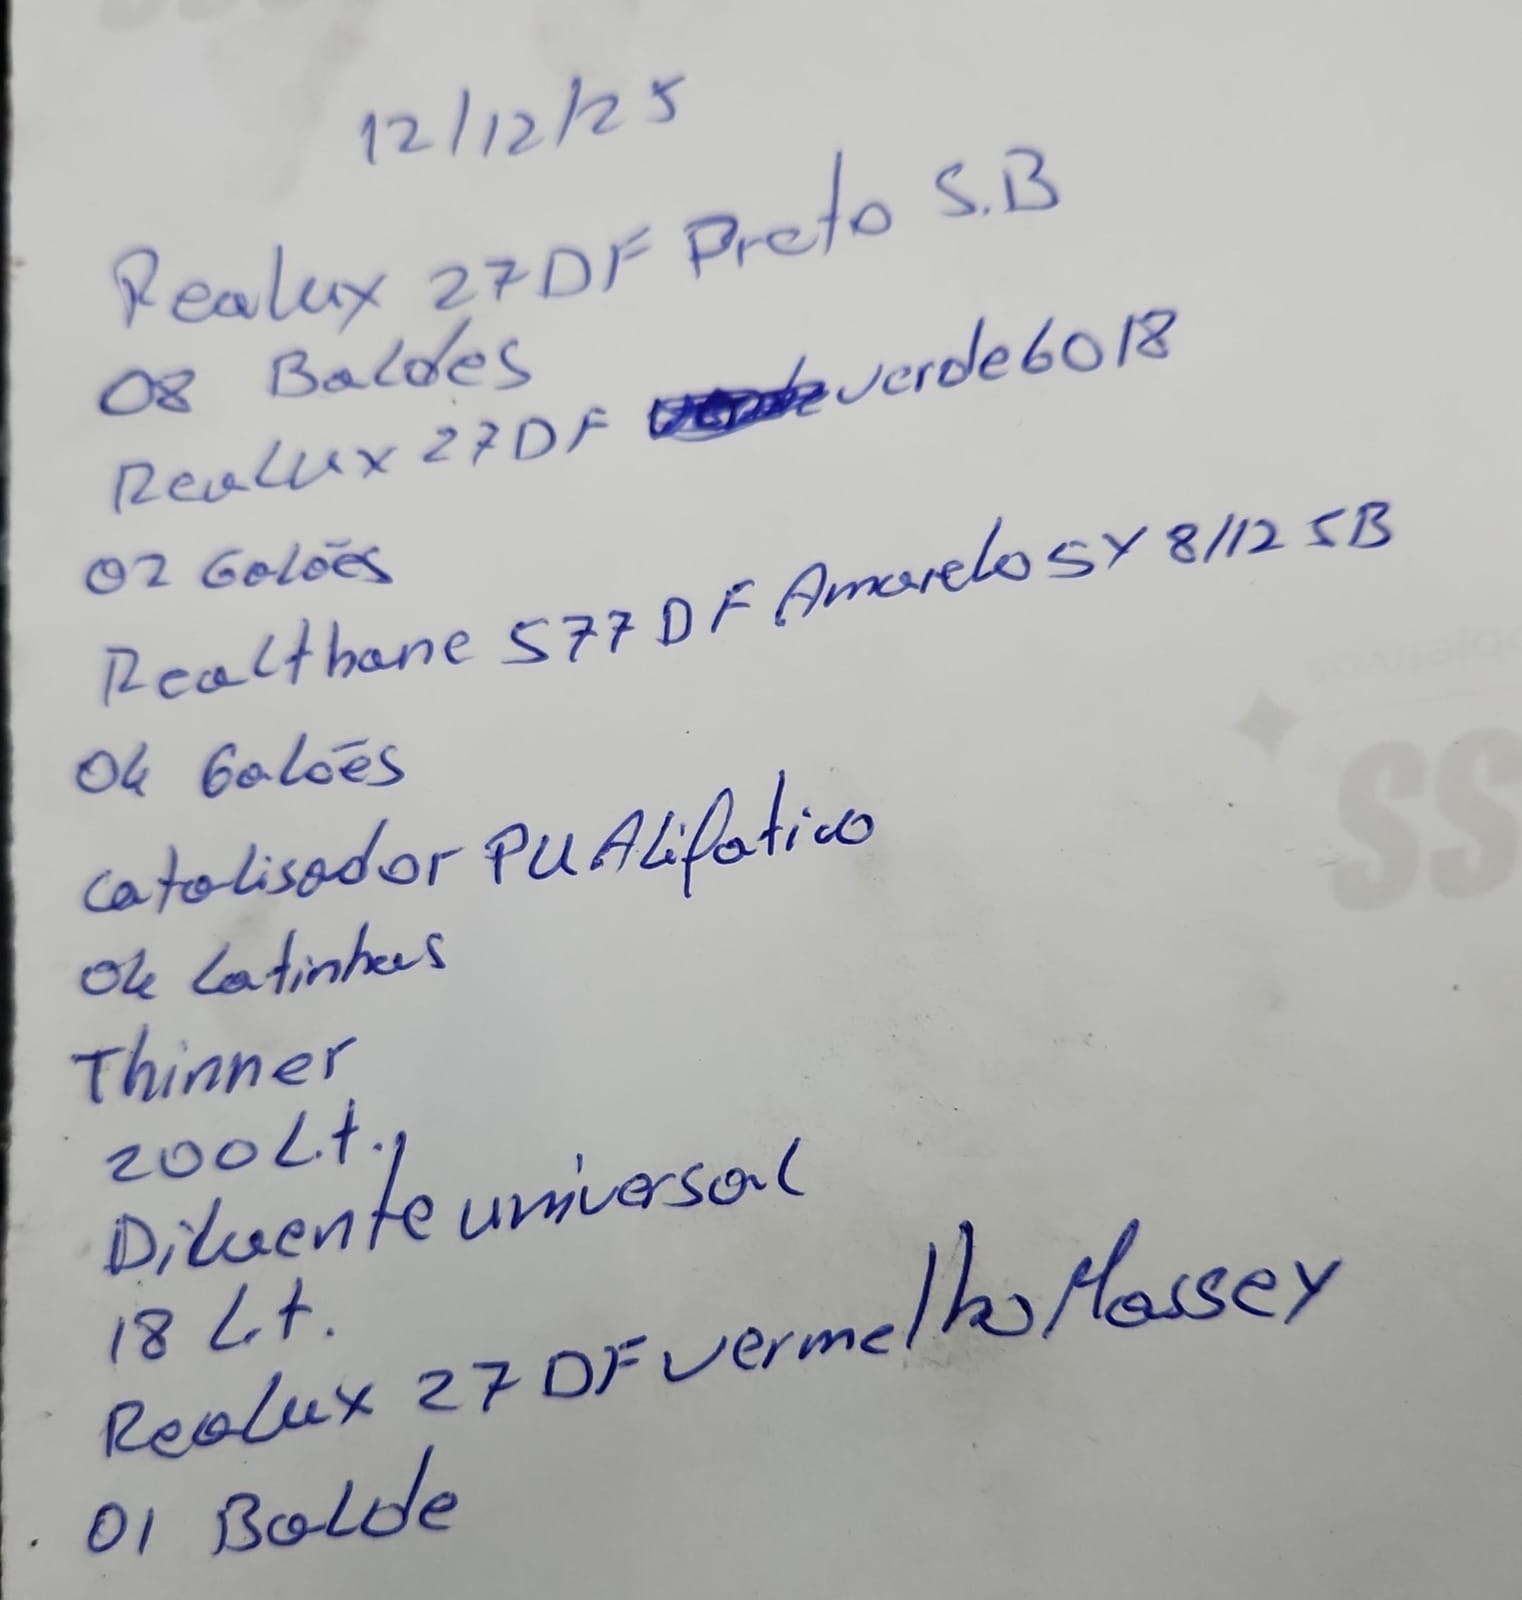 12/12/25
Realux 27DF Preto S.B
08 Baldes
Realux 27DF verde6018
02 Galões
Realthane 577DF Amarelo 5Y 8/12 SB
04 Galões
Catalisador PU Alifatico
04 Latinhas
Thinner
200 L.t.
Diluente universal
18 L.t.
Realux 27DF vermelho Massey
01 Balde
SS